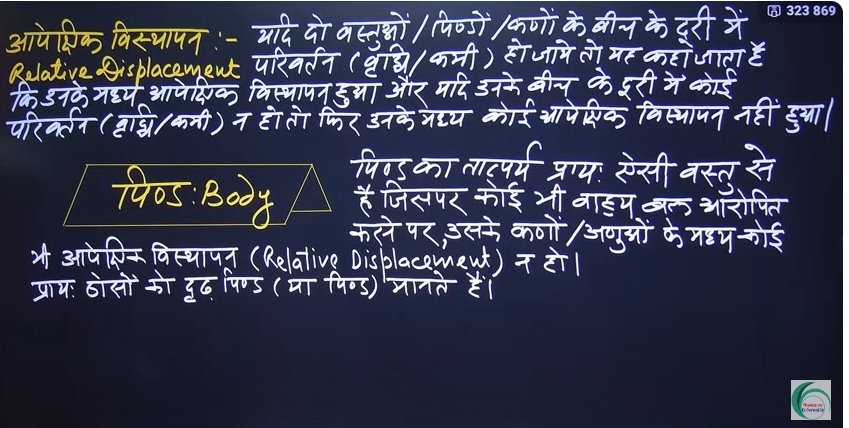 323 869
आपेक्षिक विस्थापन :- यदि दो वस्तुओं/पिण्डों/कणों के बीच के दूरी में
Relative Displacement परिवर्तन (वृद्धि/कमी) हो जाये तो यह कहा जाता है
कि उनके मध्य आपेक्षिक विस्थापन हुआ और यदि उनके बीच के दूरी में कोई
परिवर्तन (वृद्धि/कमी) न हो तो फिर उनके मध्य कोई आपेक्षिक विस्थापन नहीं हुआ।
पिण्ड : Body
पिण्ड का तात्पर्य प्रायः ऐसी वस्तु से
है जिसपर कोई भी वाह्य बल आरोपित
करने पर, उसके कणों/अणुओं के मध्य कोई
भी आपेक्षिक विस्थापन (Relative Displacement) न हो।
प्रायः ठोसों को दृढ़ पिण्ड (या पिण्ड) मानते हैं।